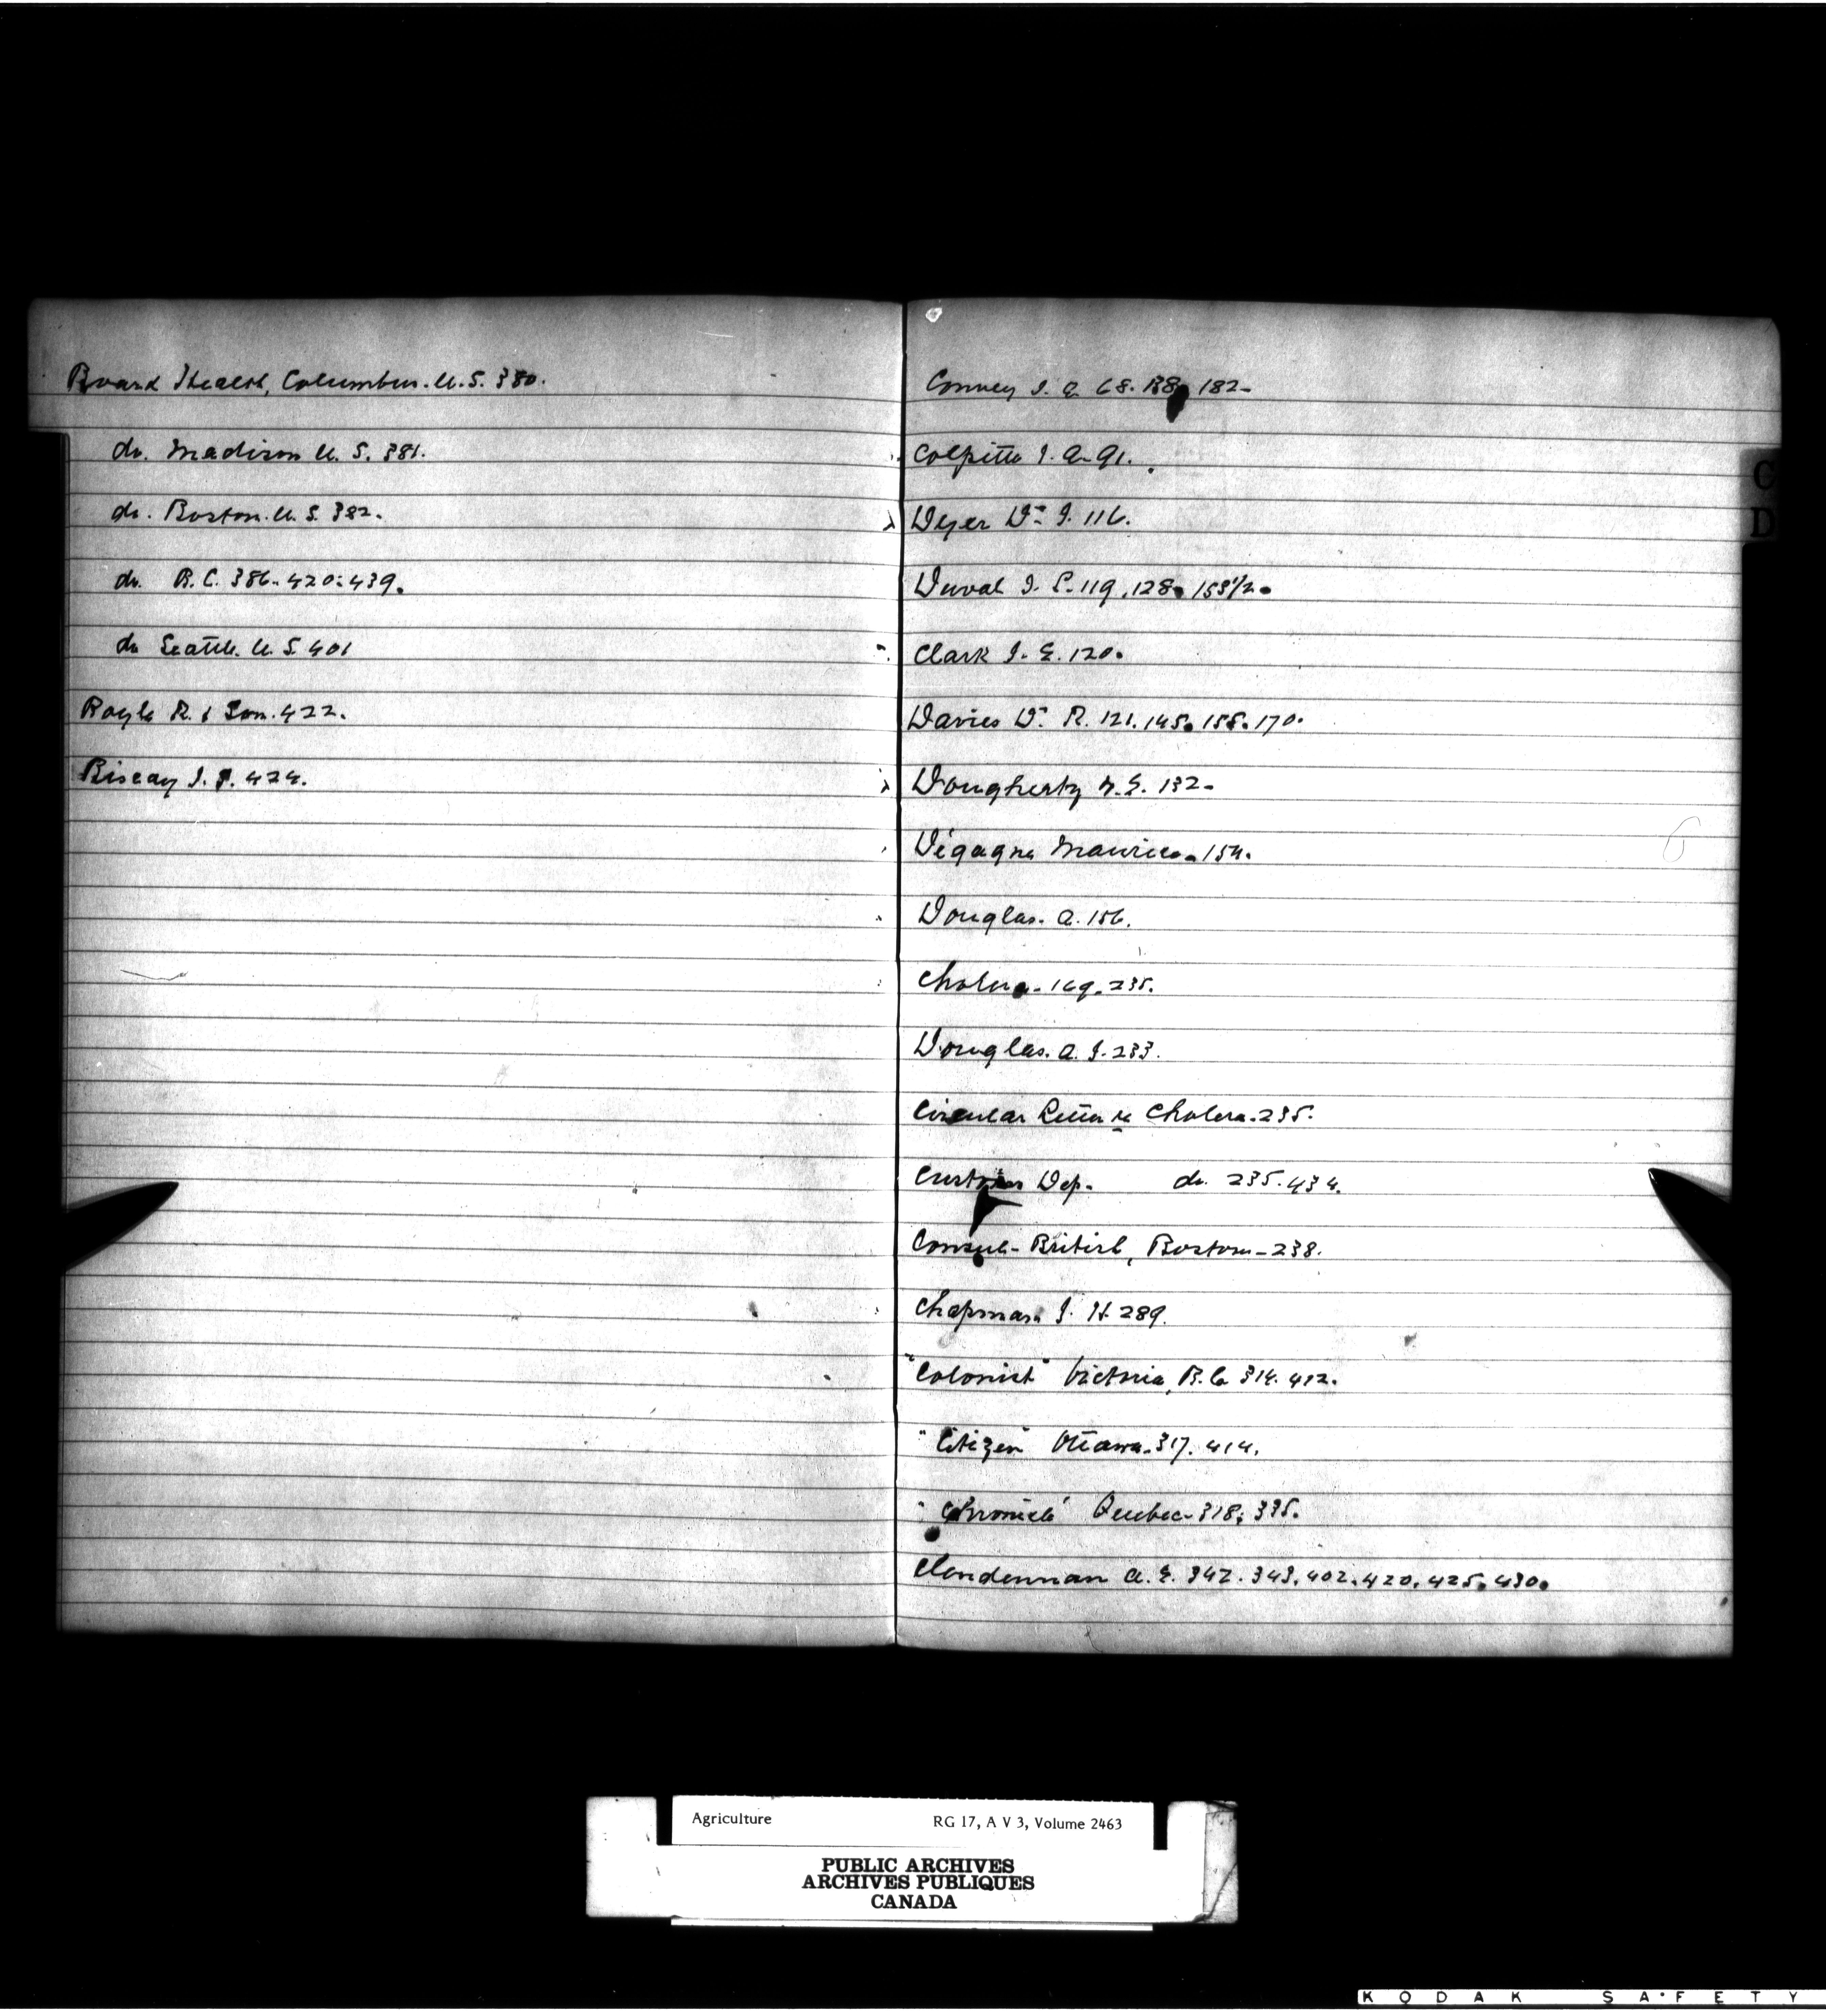 Board Health, Columbus. U.S. 380.
do. Madison U.S. 381.
do. Boston. U.S. 382.
do. B.C. 386. 420. 439.
do Seattle. U.S. 401
Boyle R. & Son. 422.
Biscay J. P. 424.
C
D
Conney J. A. 68. 182.
Colpitts J. A. 91.
Dyer Dr. J. 116.
Duval J. S. 119. 128. 153½.
Clark J. E. 120.
Davies Dr. R. 121. 145. 155. 170.
Dougherty N. E. 132.
Dégagné Maurice. 154.
Douglas. A. 156.
Cholera. 169. 235.
Douglas. A. J. 233.
Circular Letter re Cholera. 235.
Customs Dep. do. 235. 434.
Consul - British, Boston - 238.
Chapman J. H. 289.
"Colonist" Victoria, B.C. 314. 412.
"Citizen" Ottawa. 317. 414.
"Chronicle" Quebec. 318. 335.
Clendennan A. E. 342. 343. 402. 420. 425. 430.
Agriculture RG 17, A V 3, Volume 2463
PUBLIC ARCHIVES
ARCHIVES PUBLIQUES
CANADA
KODAK SAFETY